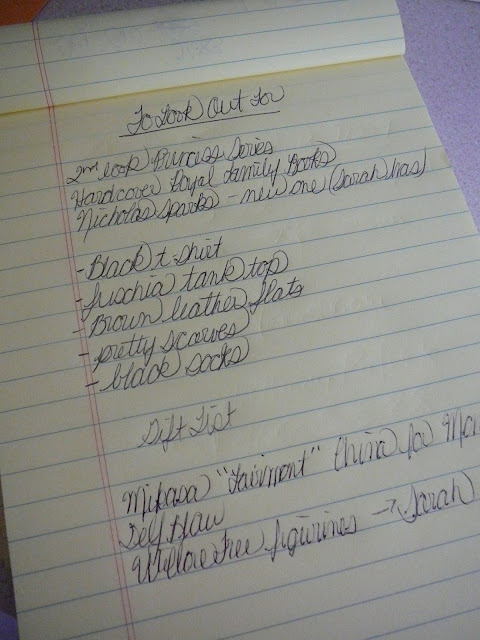 To Look Out For
2nd book Purciss Series
Hardcover Royal Family Books
Nicholas Sparks - new one (Sarah has)
- Black t-shirt
- fuschia tank top
- Brown leather flats
- pretty scarves
- black socks
Gift List
Mikasa "Fairmont" China for Mom
Willow Tree figurines → Sarah